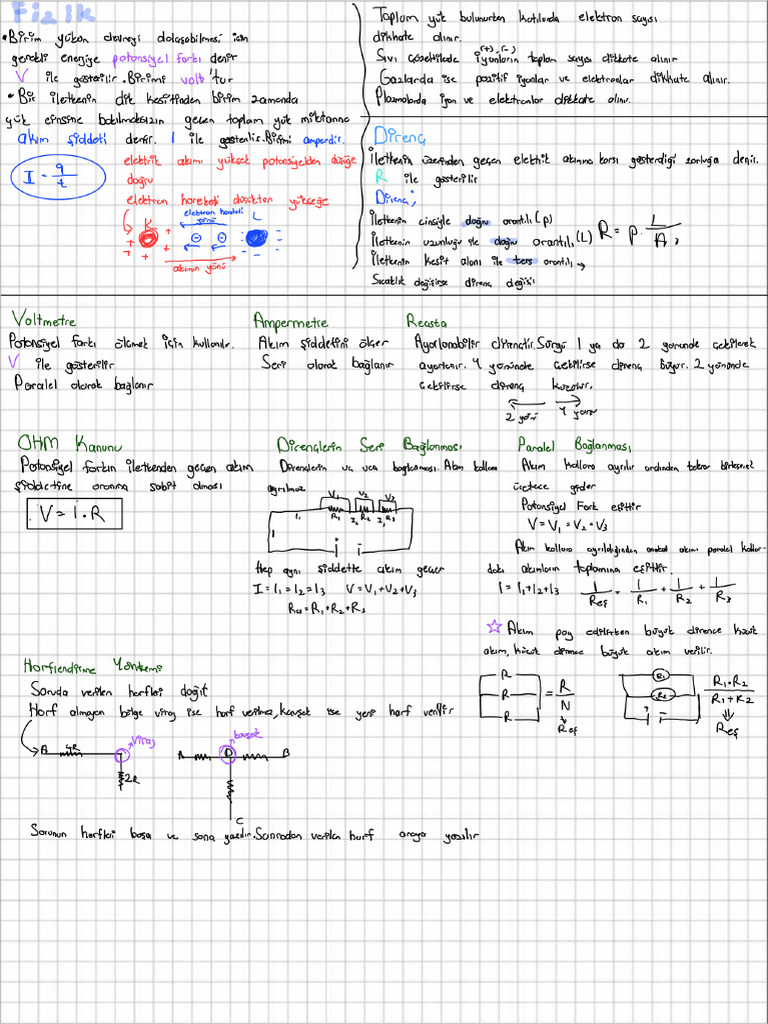 Fizik
• Birim yükün devreyi dolaşabilmesi için
gerekli enerjiye potansiyel farkı denir
V ile gösterilir. Birimi volt'tur
• Bir iletkenin dik kesitinden birim zamanda
yük cinsine bakılmaksızın geçen toplam yük miktarına
akım şiddeti denir. I ile gösterilir. Birimi amperdir.
I = q/t
elektrik akımı yüksek potansiyelden düşüğe
doğru
elektron hareketi düşükten yükseğe
elektron hareketi
yönü
K L
akımın yönü
Toplam yük bulunurken katılarda elektron sayısı
dikkate alınır.
(+), (-)
Sıvı çözeltilerde iyonların toplam sayısı dikkate alınır
Gazlarda ise pozitif iyonlar ve elektronlar dikkate alınır.
Plazmalarda iyon ve elektronlar dikkate alınır.
Direnç
İletkenin üzerinden geçen elektrik akımına karşı gösterdiği zorluğa denir.
R ile gösterilir
Direnç;
İletkenin cinsiyle doğru orantılı (ρ)
İletkenin uzunluğu ile doğru orantılı (L)
İletkenin kesit alanı ile ters orantılı →
R = ρ · L/A;
Sıcaklık değişirse direnç değişir
Voltmetre
Potansiyel farkı ölçmek için kullanılır.
V ile gösterilir
Paralel olarak bağlanır
Ampermetre
Akım şiddetini ölçer
Seri olarak bağlanır
Reosta
Ayarlanabilir dirençtir. Sürgü 1 ya da 2 yönünde çekilerek
ayarlanır. 1 yönünde çekilirse direnç büyür. 2 yönünde
çekilirse direnç küçülür.
2 yönü 1 yönü
OHM Kanunu
Potansiyel farkın iletkenden geçen akım
şiddetine oranına sabit olması
V = I · R
Dirençlerin Seri Bağlanması
Dirençlerin uc uca bağlanması. Akım kollara
ayrılmaz
V1 V2 V3
I1 R1 I2 R2 I3 R3
I
+ -
Hep aynı şiddette akım geçer
I = I1 = I2 = I3 V = V1 + V2 + V3
Reş = R1 + R2 + R3
Paralel Bağlanması
Akım kollara ayrılır ardından tekrar birleşerek
üretece gider
Potansiyel Fark eşittir
V = V1 = V2 = V3
Akım kollara ayrıldığından anakol akımı paralel kollar-
daki akımların toplamına eşittir.
I = I1 + I2 + I3 1/Reş = 1/R1 + 1/R2 + 1/R3
☆ Akım pay edilirken büyük dirence küçük
akım, küçük dirence büyük akım verilir.
R
R
R
= R/N
Reş
R1
R2
+ -
R1 · R2 / R1 + R2
Reş
Harflendirme Yöntemi
Soruda verilen harfleri dağıt
Harf almayan bölge viraj ise harf verilmez, kavşak ise yeni harf verilir
A 4R viraj
2R
kavşak
A D B
C
Sorunun harfleri başa ve sona yazılır. Sonradan verilen harf araya yazılır